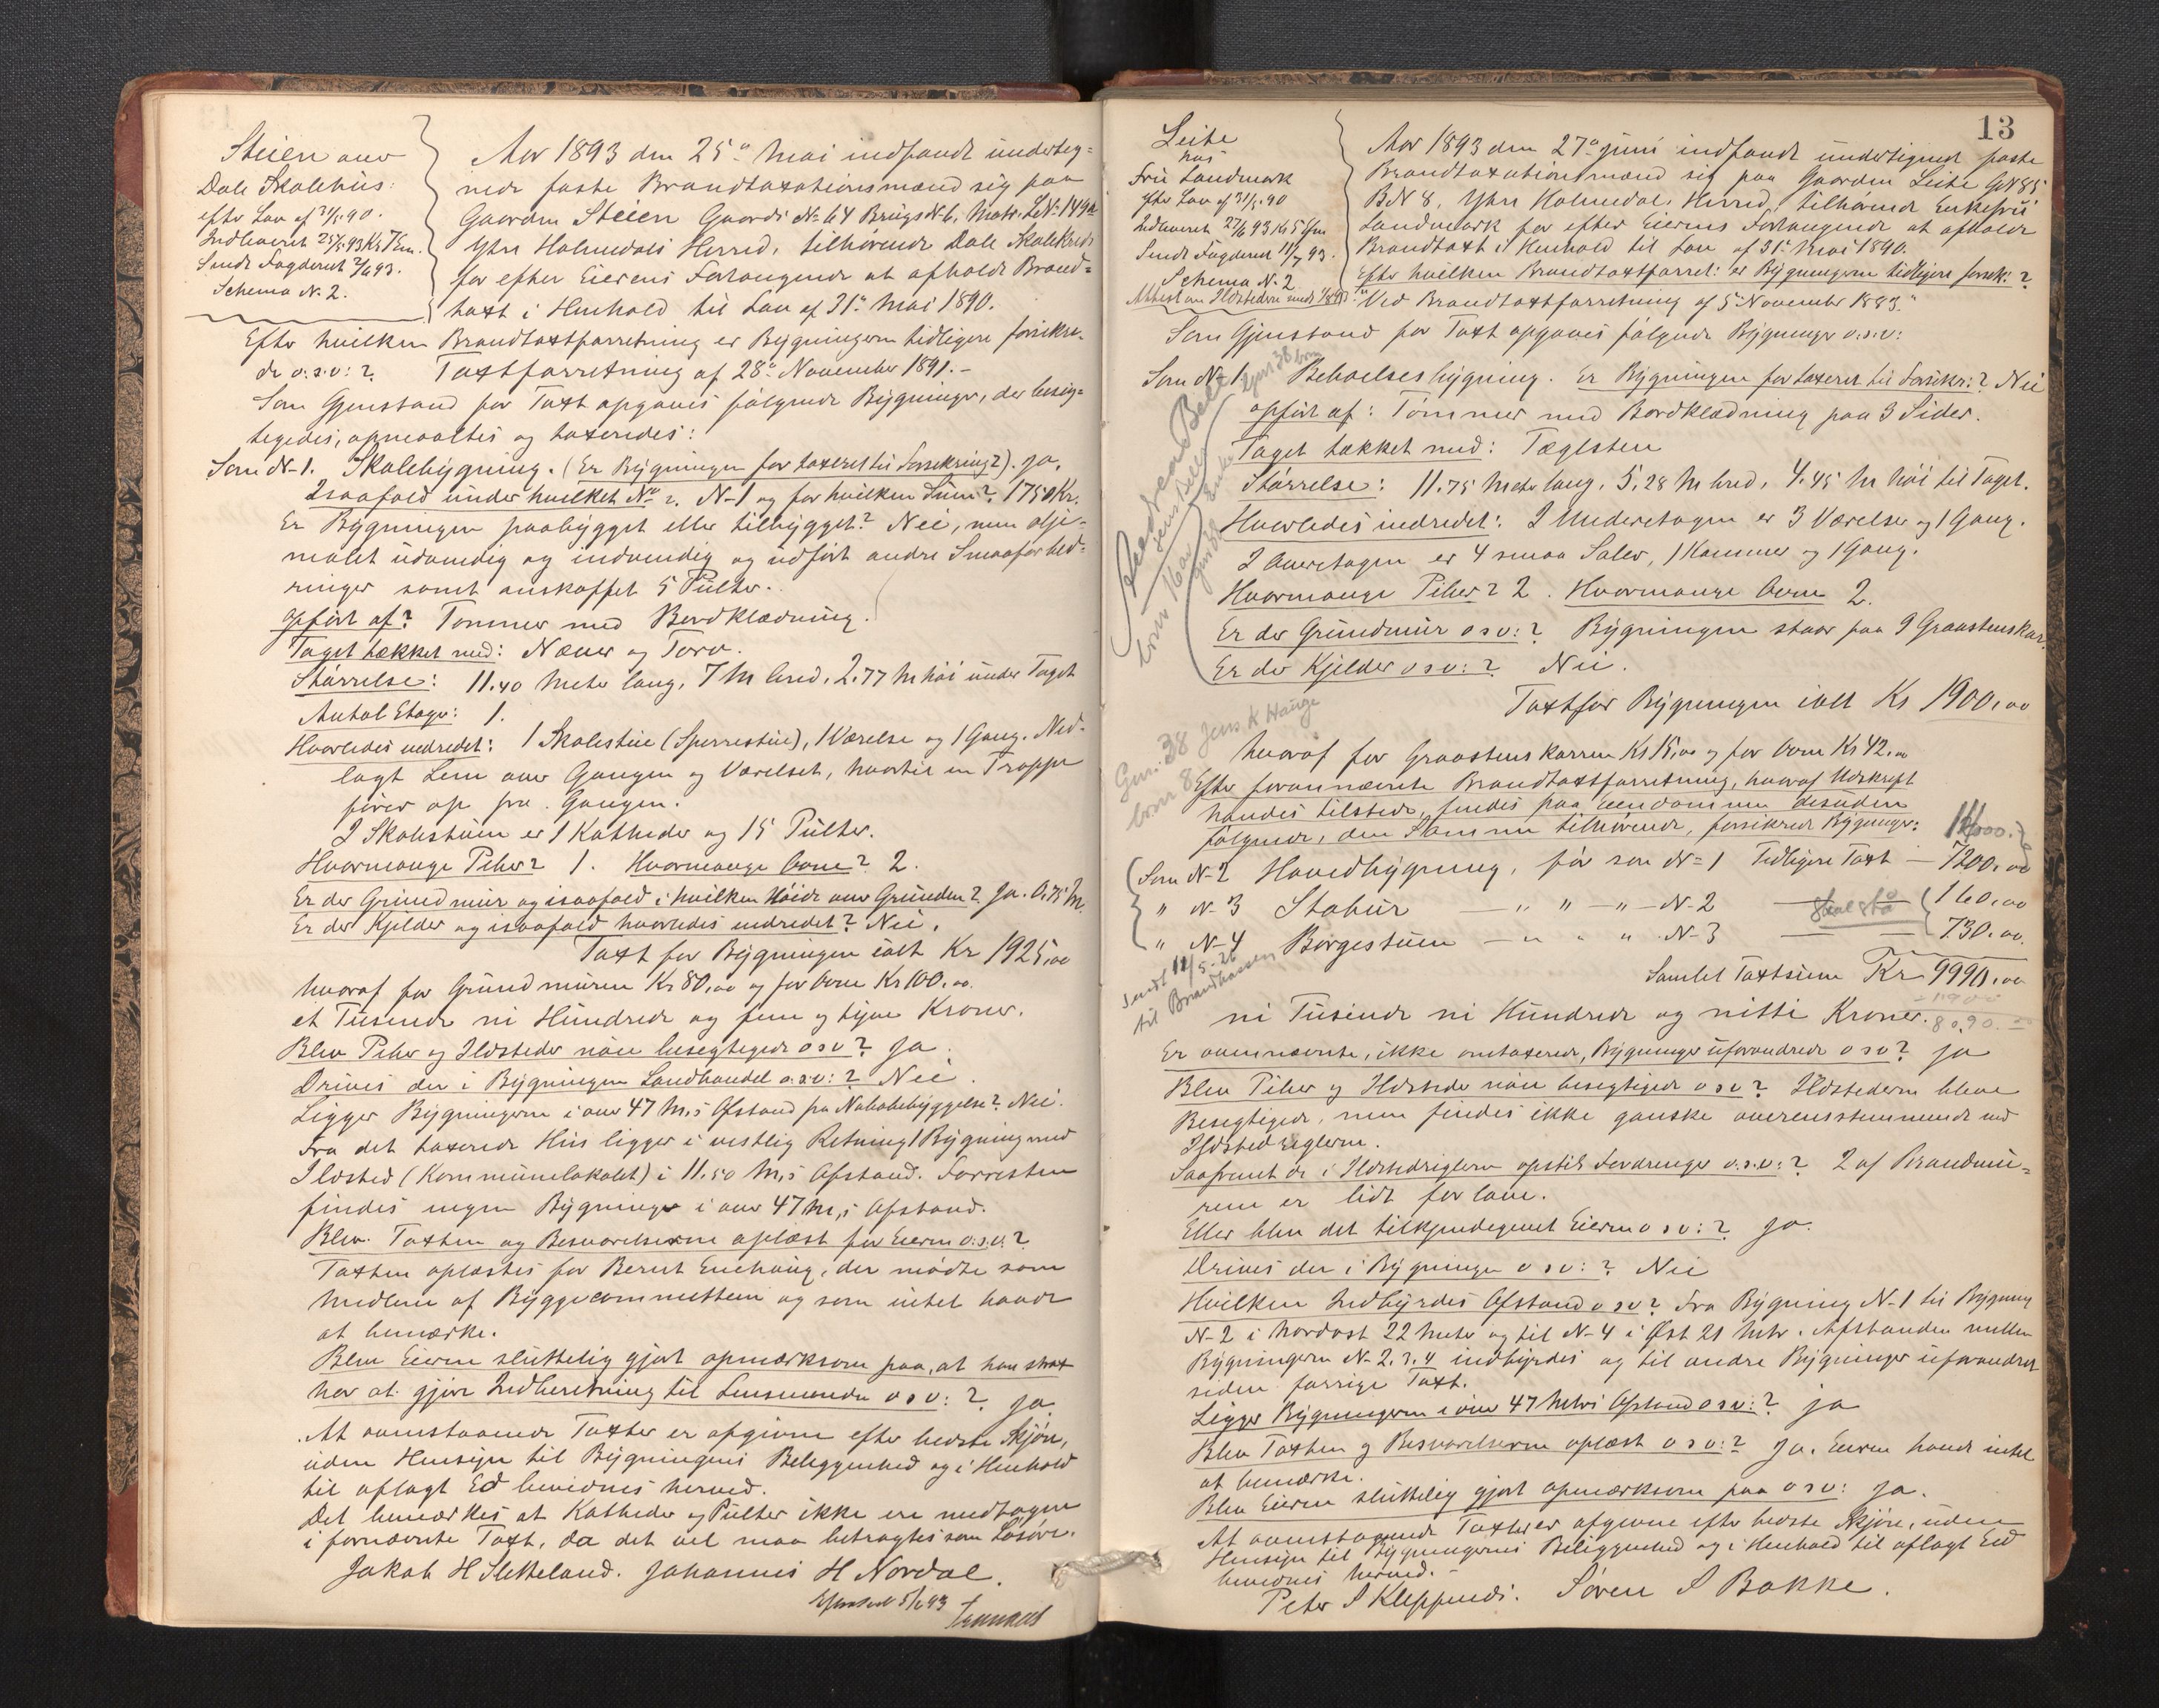 Steien auv
Dale Skolehus:
efter Lov af 31/5.90.
Indleveret 25/5.93 Kl 7 Em.
Sendt Fogderiet 2/6 93.
Schema No. 2.
Aar 1893 den 25de Mai indfandt underteg-
nede faste Brandtaxationsmænd sig paa
Gaarden Steien Gaards No 64 Brugs No 6, Matr. LNo 149a
Ytre Holmedals Herred, tilhørende Dale Skolekreds
for efter Eierens Forlangende at afholde Brand-
taxt i Henhold til Lov af 31te Mai 1890.
Efter hvilken Brandtaxtforretning er Bygningerne tidligere forsikre-
de o.s.v:? Taxtforretning af 28de November 1891.-
Som Gjenstand for Taxt opgaves følgende Bygninger, der besig-
tegedes, opmaaltes og taxeredes:
Som No 1. Skolebygning. (Er Bygningen før taxeret til Forsikring?). ja.
Isaafald under hvilket No? No 1 og for hvilken Sum? 1750 Kr.
Er Bygningen paabygget eller tilbygget? Nei, men olje-
malet udvendig og indvendig og udført andre Smaaforbed-
ringer samt anskaffet 5 Pulter.
Opført af? Tømmer med Bordklædning.
Taget tækket med: Næver og Torv.
Størrelse: 11.40 Meter lang, 7 M bred, 2.77 M høi under Taget
Antal Etager: 1.
Hvorledes indredet: 1 Skolestue (Sperrestue), 1 Værelse og 1 Gang. Ned-
lagt Lem over Gangen og Værelset, hvortil en Trappe
fører op fra Gangen.
I Skolestuen er 1 Katheder og 15 Pulter.
Hvormange Piber? 1. Hvormange Ovne? 2.
Er der Grundmur og isaafald i hvilken Høide over Grunden? Ja. 0.75 M.
Er der Kjelder og isaafald hvorledes indredet? Nei.
Taxt for Bygningen ialt Kr 1925,00
hvoraf for Grundmuren Kr 80,00 og for Ovne Kr 100,00.
et Tusende ni Hundrede og fem og tyve Kroner.
Blev Piber og Ildsteder nøie besegtigede o s v? Ja.
Drives der i Bygningen Landhandel o.s.v:? Nei.
Ligger Bygningerne i over 47 M,s Afstand fra Nabobebyggelse? Nei.
Fra det taxerede Hus ligger i vestlig Retning 1 Bygning med
Ildsted (Kommunelokalet) i 11.50 M,s Afstand. Forresten
findes ingen Bygninger i over 47 M,s Afstand.
Blev Taxten og Besvarelserne oplæst for Eieren o.s.v.?
Taxten oplæstes for Berent Enehaug, der mødte som
Medlem af Byggecommitteen og som intet havde
at bemærke.
Blev Eieren sluttelig gjort opmærksom paa, at han strax
har at gjøre Indberetning til Lensmanden o s v:? ja.
At ovenstaaende Taxter er afgivne efter bedste Skjøn,
uden Hensyn til Bygningens Beleggenhed og i Henhold
til aflagt Ed bevidnes herved.
Det bemærkes at Katheder og Pulter ikke ere medtagne
i fornævnte Taxt, da det vel maa betragtes som Løsøre.
Jakob H Sletteland. Johannes H Nordal.
13
Leite
hos
Frue Landmark
efter Lov af 31/5.90
Indleveret 27/6 93 Kl 5 Em
Sendt Fogderiet 11/7 93.
Schema No. 2
Aar 1893 den 27de Juni indfandt undertegnede faste
Brandtaxationsmænd sig paa Gaarden Leite GNo 85
BNo 8, Ytre Holmedals Herred, tilhørende Enkefru
Landmark for efter Eierens Forlangende at afholde
Brandtaxt i Henhold til Lov af 31te Mai 1890.
Efter hvilken Brandtaxtforret: er Bygningerne tidligere forsik:?
"Ved Brandtaxtforretning af 5te November 1883."
Som Gjenstand for Taxt opgaves følgende Bygninger o.s.v:
Som No 1. Beboelsesbygning. Er Bygningen før taxeret til Forsikr:? Nei
opført af: Tømmer med Bordklædning paa 3 Sider.
Taget tækket med: Tæglsten
Størrelse: 11.75 Meter lang, 5.28 M bred, 4.45 M høi til Taget.
Hvorledes indredet: I Underetagen er 3 Værelser og 1 Gang.
I Overetagen er 4 smaa Saler, 1 Kammer og 1 Gang.
Hvormange Piber? 2. Hvormange Ovne 2.
Er der Grundmur o s v:? Bygningen staar paa 9 Graastenskar.
Er der Kjelder o s v:? Nei.
Taxt for Bygningen ialt Kr 1900,00
Gnr. 38 Jens K Hauge
bnr 8
hvoraf for Graastenskarrene Kr 15,00 og for Ovne Kr 42,00
Efter forannævnte Brandtaxtforretning, hvoraf Udskrift
havdes tilstede, findes paa Eiendommen desuden
følgende, den samme tilhørende, forsikrede Bygninger:
Som No 2 Hovedbygning, før som No 1 Tidligere Taxt — 7200,00
" No 3 Stabur — " " — " — No 2 160,00
" No 4 Borgestuen — " " " No 3 730,00.
Skal stå
Sendt 12/5-26
til Brandkassen
Samlet Taxtsum Kr 9990,00
1900
8090.00
ni Tusinde ni Hundrede og nitti Kroner.
Er ovennævnte, ikke omtaxerede, Bygninger uforandrede o s v? ja
Blev Piber og Ildsteder nøie besegtigede o s v? Ildstederne bleve
Besegtigede, men findes ikke ganske overensstemmende med
Ildstedreglerne.
Saafremt de i Ildstedreglerne opstil: Fordringer o.s.v:? 2 af Brandmu-
rene er lidt for lave.
Eller blev det tilkjendegivet Eieren o s v:? ja.
Drives der i Bygningen o s v:? Nei
Hvilken Indbyrdes Afstand o s v? Fra Bygning No 1 til Bygning
No 2 i Nordost 22 Meter og til No 4 i Øst 21 Metr. Afstanden mellem
Bygningerne No 2.3.4 indbyrdes og til andre Bygninger uforandret
siden forrige Taxt.
Ligger Bygningerne i over 47 Metrs Afstand o s v:? ja
Blev Taxten og Besvarelserne oplæst o s v:? Ja. Eieren havde intet
at bemærke.
Blev Eieren sluttelig gjort opmærksom paa o s v: ja.
At ovenstaaende Taxter er afgivne efter bedste Skjøn, uden
Hensyn til Bygningernes Beliggenhed og i Henhold til aflagt Ed
bevidnes herved.-
Peter S Kleppenes. Søren S Bakke.